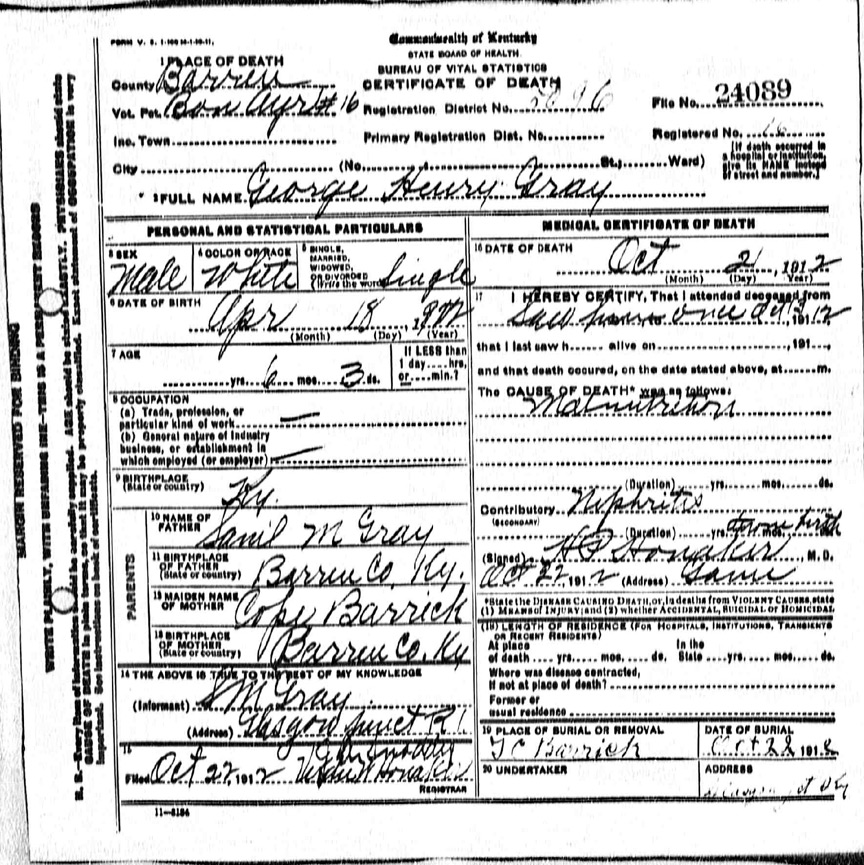 FORM V. S. 1-
Commonwealth of Kentucky
STATE BOARD OF HEALTH.
BUREAU OF VITAL STATISTICS
CERTIFICATE OF DEATH
1 PLACE OF DEATH
County Barren
Vot. Pct. Bon Ayr #16 Registration District No. File No. 24089
Inc. Town Primary Registration Dist. No. Registered No. 16
City (No. St.; Ward)
[If death occurred in a hospital or institution, give its NAME instead of street and number.]
2 FULL NAME George Henry Gray
PERSONAL AND STATISTICAL PARTICULARS
3 SEX Male
4 COLOR OR RACE White
5 SINGLE, MARRIED, WIDOWED, OR DIVORCED (Write the word) Single
6 DATE OF BIRTH Apr 18
(Month) (Day) (Year)
7 AGE
yrs. 6 mos. 3 ds.
If LESS than 1 day hrs. or min.?
8 OCCUPATION
(a) Trade, profession, or particular kind of work —
(b) General nature of industry business, or establishment in which employed (or employer) —
9 BIRTHPLACE (State or country) Ky.
PARENTS
10 NAME OF FATHER M Gray
11 BIRTHPLACE OF FATHER (State or country) Barren Co. Ky.
12 MAIDEN NAME OF MOTHER Barrick
13 BIRTHPLACE OF MOTHER (State or country) Barren Co. Ky
14 THE ABOVE IS TRUE TO THE BEST OF MY KNOWLEDGE
(Informant) S M Gray
(Address) Glasgow Junct R 1
15
Filed Oct 22 1912 Honaker
REGISTRAR
11-6184
MEDICAL CERTIFICATE OF DEATH
16 DATE OF DEATH Oct 21, 1912
(Month) (Day) Year)
17 I HEREBY CERTIFY, That I attended deceased from
Saw once 1912
that I last saw h alive on , 191
and that death occured, on the date stated above, at m.
The CAUSE OF DEATH* was as follows:
Malnutrition
(Duration) yrs. mos. ds.
Contributory Nephritis
(SECONDARY)
(Duration) yrs. mos. ds. from birth
(Signed) H P Honaker M. D.
Oct 22 1912 (Address) Same
*State the DISEASE CAUSING DEATH, or, in deaths from VIOLENT CAUSES, state
(1) MEANS OF INJURY; and (2) whether ACCIDENTAL, SUICIDAL OR HOMICIDAL
(18) LENGTH OF RESIDENCE (FOR HOSPITALS, INSTITUTIONS, TRANSIENTS OR RECENT RESIDENTS)
At place of death yrs. mos. ds. In the State yrs. mos. ds.
Where was disease contracted,
if not at place of death?
Former or
usual residence
19 PLACE OF BURIAL OR REMOVAL Barrick
DATE OF BURIAL Oct 22 1912
20 UNDERTAKER
ADDRESS
MARGIN RESERVED FOR BINDING
WRITE PLAINLY, WITH UNFADING INK—THIS IS A PERMANENT RECORD
N. B.—Every item of information should be carefully supplied. AGE should be stated EXACTLY. PHYSICIANS should state
CAUSE OF DEATH in plain terms, so that it may be properly classified. Exact statement of OCCUPATION is very
important. See instructions on back of certificate.